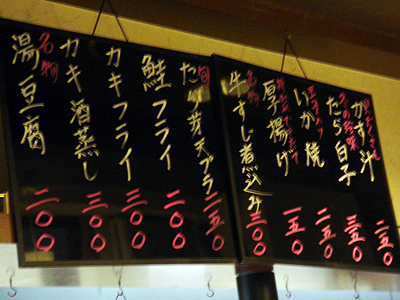 かす汁 二五〇
たら白子 三五〇
いか焼 二五〇
厚揚げ 一五〇
名物
牛すじ煮込み 三〇〇
旬
芽天プラ 二五〇
鮭フライ 二〇〇
カキフライ 三〇〇
カキ酒蒸し 三〇〇
名物
湯豆腐 二〇〇